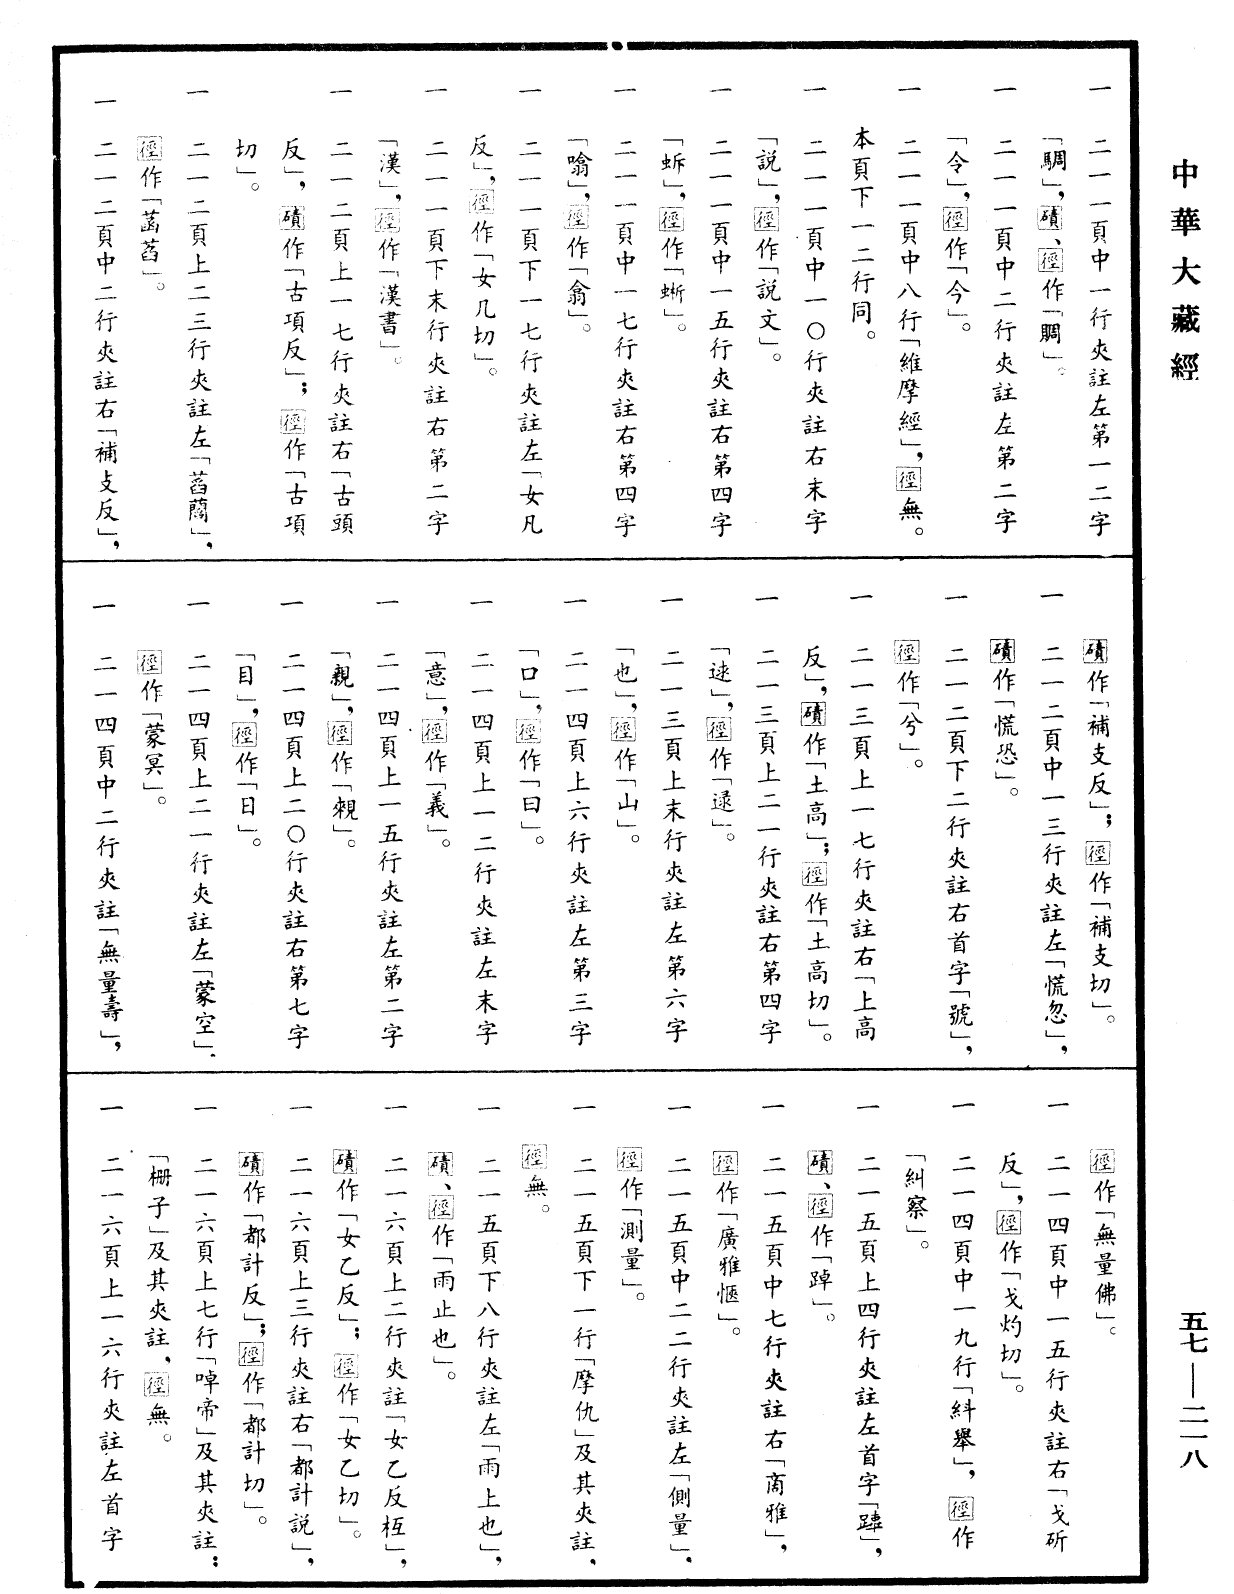 中華大藏經
五七—二一八
一 二一一頁中一行夾註左第一二字
「騆」，磧、徑作「賙」。
一 二一一頁中二行夾註左第二字
「令」，徑作「今」。
一 二一一頁中八行「維摩經」，徑無。
本頁下一二行同。
一 二一一頁中一〇行夾註右末字
「説」，徑作「説文」。
一 二一一頁中一五行夾註右第四字
「蚸」，徑作「蜥」。
一 二一一頁中一七行夾註右第四字
「噏」，徑作「翕」。
一 二一一頁下一七行夾註左「女凡
反」，徑作「女几切」。
一 二一一頁下末行夾註右第二字
「漢」，徑作「漢書」。
一 二一二頁上一七行夾註右「古頭
反」，磧作「古項反」；徑作「古項
切」。
一 二一二頁上二三行夾註左「萏蘭」，
徑作「菡萏」。
一 二一二頁中二行夾註右「補攴反」，
磧作「補支反」；徑作「補支切」。
一 二一二頁中一三行夾註左「慌忽」，
磧作「慌恐」。
一 二一二頁下二行夾註右首字「號」，
徑作「兮」。
一 二一三頁上一七行夾註右「上高
反」，磧作「土高」；徑作「土高切」。
一 二一三頁上二一行夾註右第四字
「逑」，徑作「逯」。
一 二一三頁上末行夾註左第六字
「也」，徑作「山」。
一 二一四頁上六行夾註左第三字
「口」，徑作「曰」。
一 二一四頁上一二行夾註左末字
「意」，徑作「義」。
一 二一四頁上一五行夾註左第二字
「親」，徑作「覥」。
一 二一四頁上二〇行夾註右第七字
「目」，徑作「日」。
一 二一四頁上二一行夾註左「蒙空」，
徑作「蒙冥」。
一 二一四頁中二行夾註「無量壽」，
徑作「無量佛」。
一 二一四頁中一五行夾註右「戈斫
反」，徑作「戈灼切」。
一 二一四頁中一九行「糾舉」，徑作
「糾察」。
一 二一五頁上四行夾註左首字「躂」，
磧、徑作「踔」。
一 二一五頁中七行夾註右「啇雅」，
徑作「廣雅愜」。
一 二一五頁中二二行夾註左「側量」，
徑作「測量」。
一 二一五頁下一行「摩仇」及其夾註，
徑無。
一 二一五頁下八行夾註左「雨上也」，
磧、徑作「雨止也」。
一 二一六頁上二行夾註「女乙反柾」，
磧作「女乙反」；徑作「女乙切」。
一 二一六頁上三行夾註右「都計説」，
磧作「都計反」；徑作「都計切」。
一 二一六頁上七行「啅帝」及其夾註；
「栅子」及其夾註，徑無。
一 二一六頁上一六行夾註左首字